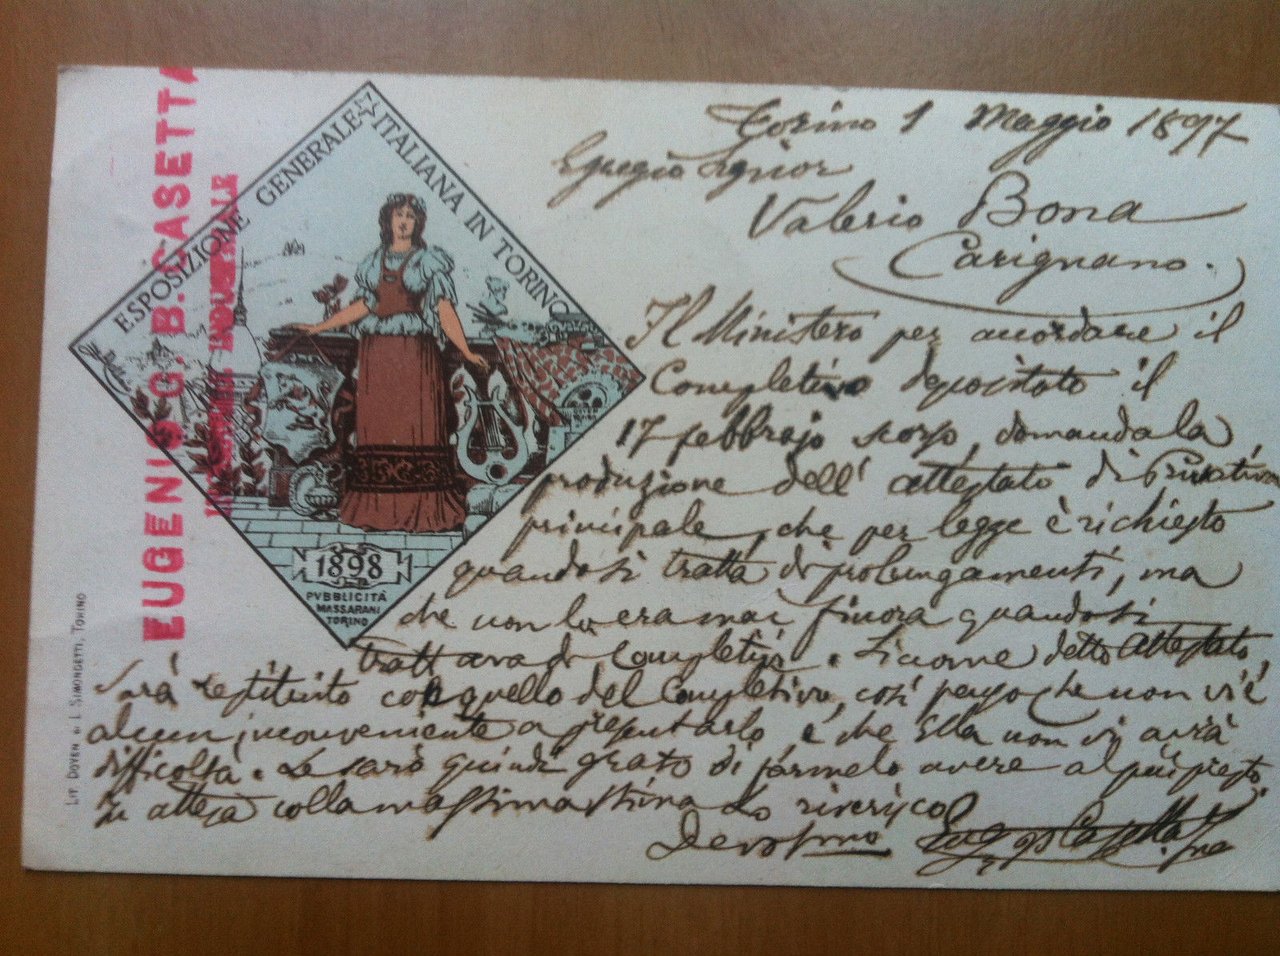 EUGENIO G. B. CASETTA
INGEGNERE INDUSTRIALE
ESPOSIZIONE GENERALE ITALIANA IN TORINO
1898
PVBBLICITÀ
MASSARANI
TORINO
LIT. DOYEN DI L. SIMONDETTI, TORINO
Torino 1 Maggio 1897
Egregio Signior
Valerio Bona
Carignano.
Il Ministero per accordare il
Completivo depositato il
17 febbrajo scorso, domanda la
produzione dell' attestato di Privativa
principale, che per legge è richiesto
quando si tratta di prolungamenti, ma
che non lo era mai finora quando si
trattava di Completivi. Siccome detto Attestato
sarà restituito con quello del Completivo, così penso che non vi è
alcun inconveniente a presentarlo, e che Ella non vi avrà
difficoltà. Le sarò quindi grato di farmelo avere al più presto
In attesa colla massima stima La riverisco
Devotismo